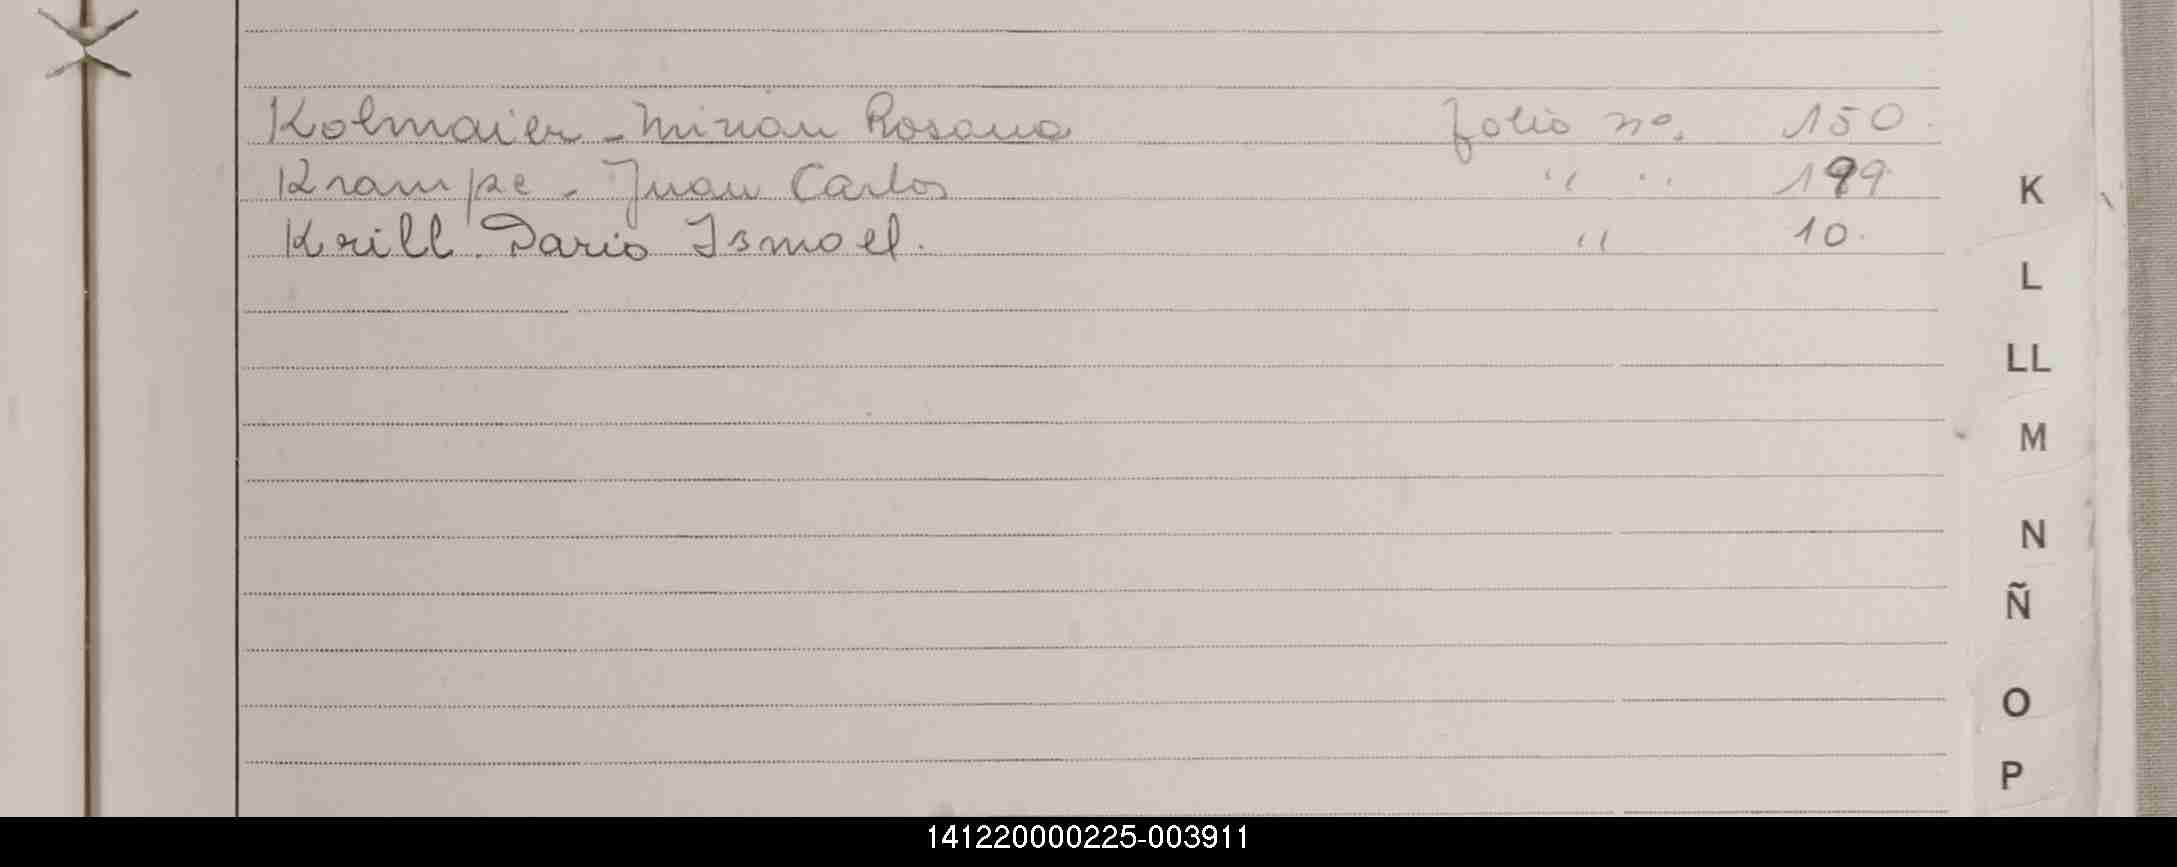 Kolmaier - Mirian Rosana folio no. 150.
Krampe - Juan Carlos " " 199.
Krill. Dario Ismael. " 10.
K
L
LL
M
N
Ñ
O
P
141220000225-003911